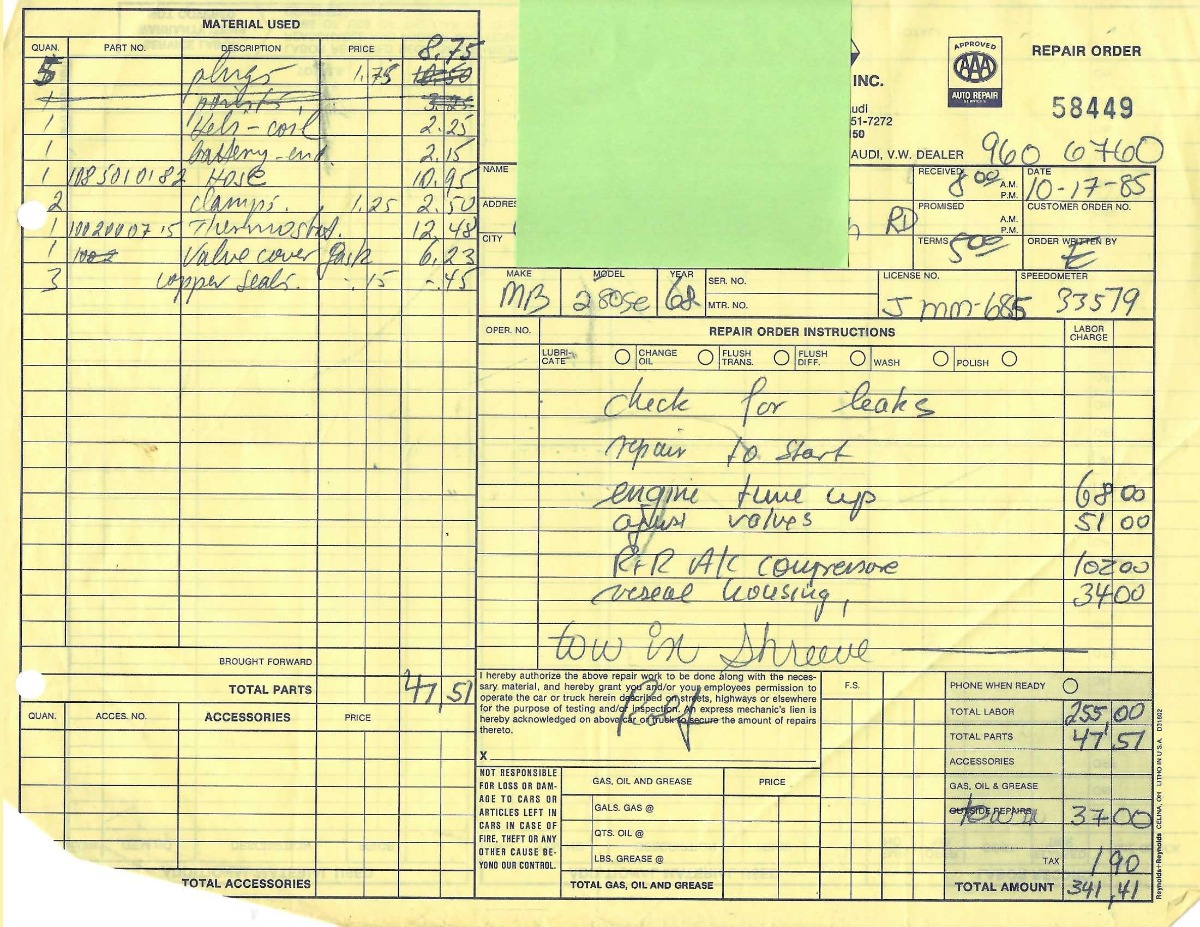 MATERIAL USED
QUAN. PART NO. DESCRIPTION PRICE 8.75
5 plugs 1.75 10.50
1 points, 3.25
1 Heli-coil 2.25
1 battery-end. 2.15
1 1085010182 Hose 10.95
2 clamps. 1.25 2.50
1 1002000715 Thermostat. 12.48
1 1002 Valve cover gask 6.23
3 copper seals. .15 -.45
BROUGHT FORWARD
TOTAL PARTS 47,51
QUAN. ACCES. NO. ACCESSORIES PRICE
TOTAL ACCESSORIES
INC.
APPROVED
AAA
AUTO REPAIR
SERVICES
REPAIR ORDER
58449
udi
51-7272
150
AUDI, V.W. DEALER 960 6760
NAME
RECEIVED 8 00 A.M. P.M.
DATE 10-17-85
ADDRES
RD
PROMISED A.M. P.M.
CUSTOMER ORDER NO.
CITY
TERMS 500
ORDER WRITTEN BY
MAKE MB
MODEL 280SE
YEAR 68
SER. NO.
MTR. NO.
LICENSE NO. J mm-685
SPEEDOMETER 33579
OPER. NO. REPAIR ORDER INSTRUCTIONS LABOR CHARGE
LUBRI-CATE CHANGE OIL FLUSH TRANS. FLUSH DIFF. WASH POLISH
check for leaks
repair to start
engine tune up 68 00
ajust values 51 00
R+R A/C compressore 102 00
reseal housing, 34 00
tow in Shreeve
I hereby authorize the above repair work to be done along with the neces-
sary material, and hereby grant you and/or your employees permission to
operate the car or truck herein described on streets, highways or elsewhere
for the purpose of testing and/or inspection. An express mechanic's lien is
hereby acknowledged on above car or truck to secure the amount of repairs
thereto.
X
F.S.
PHONE WHEN READY
TOTAL LABOR 255,00
TOTAL PARTS 47 51
ACCESSORIES
GAS, OIL & GREASE
OUTSIDE REPAIRS tow in 37 00
TAX 1 90
TOTAL AMOUNT 341,41
NOT RESPONSIBLE
FOR LOSS OR DAM-
AGE TO CARS OR
ARTICLES LEFT IN
CARS IN CASE OF
FIRE, THEFT OR ANY
OTHER CAUSE BE-
YOND OUR CONTROL.
GAS, OIL AND GREASE PRICE
GALS. GAS @
QTS. OIL @
LBS. GREASE @
TOTAL GAS, OIL AND GREASE
Reynolds+Reynolds CELINA, OH LITHO IN U.S.A. D31602